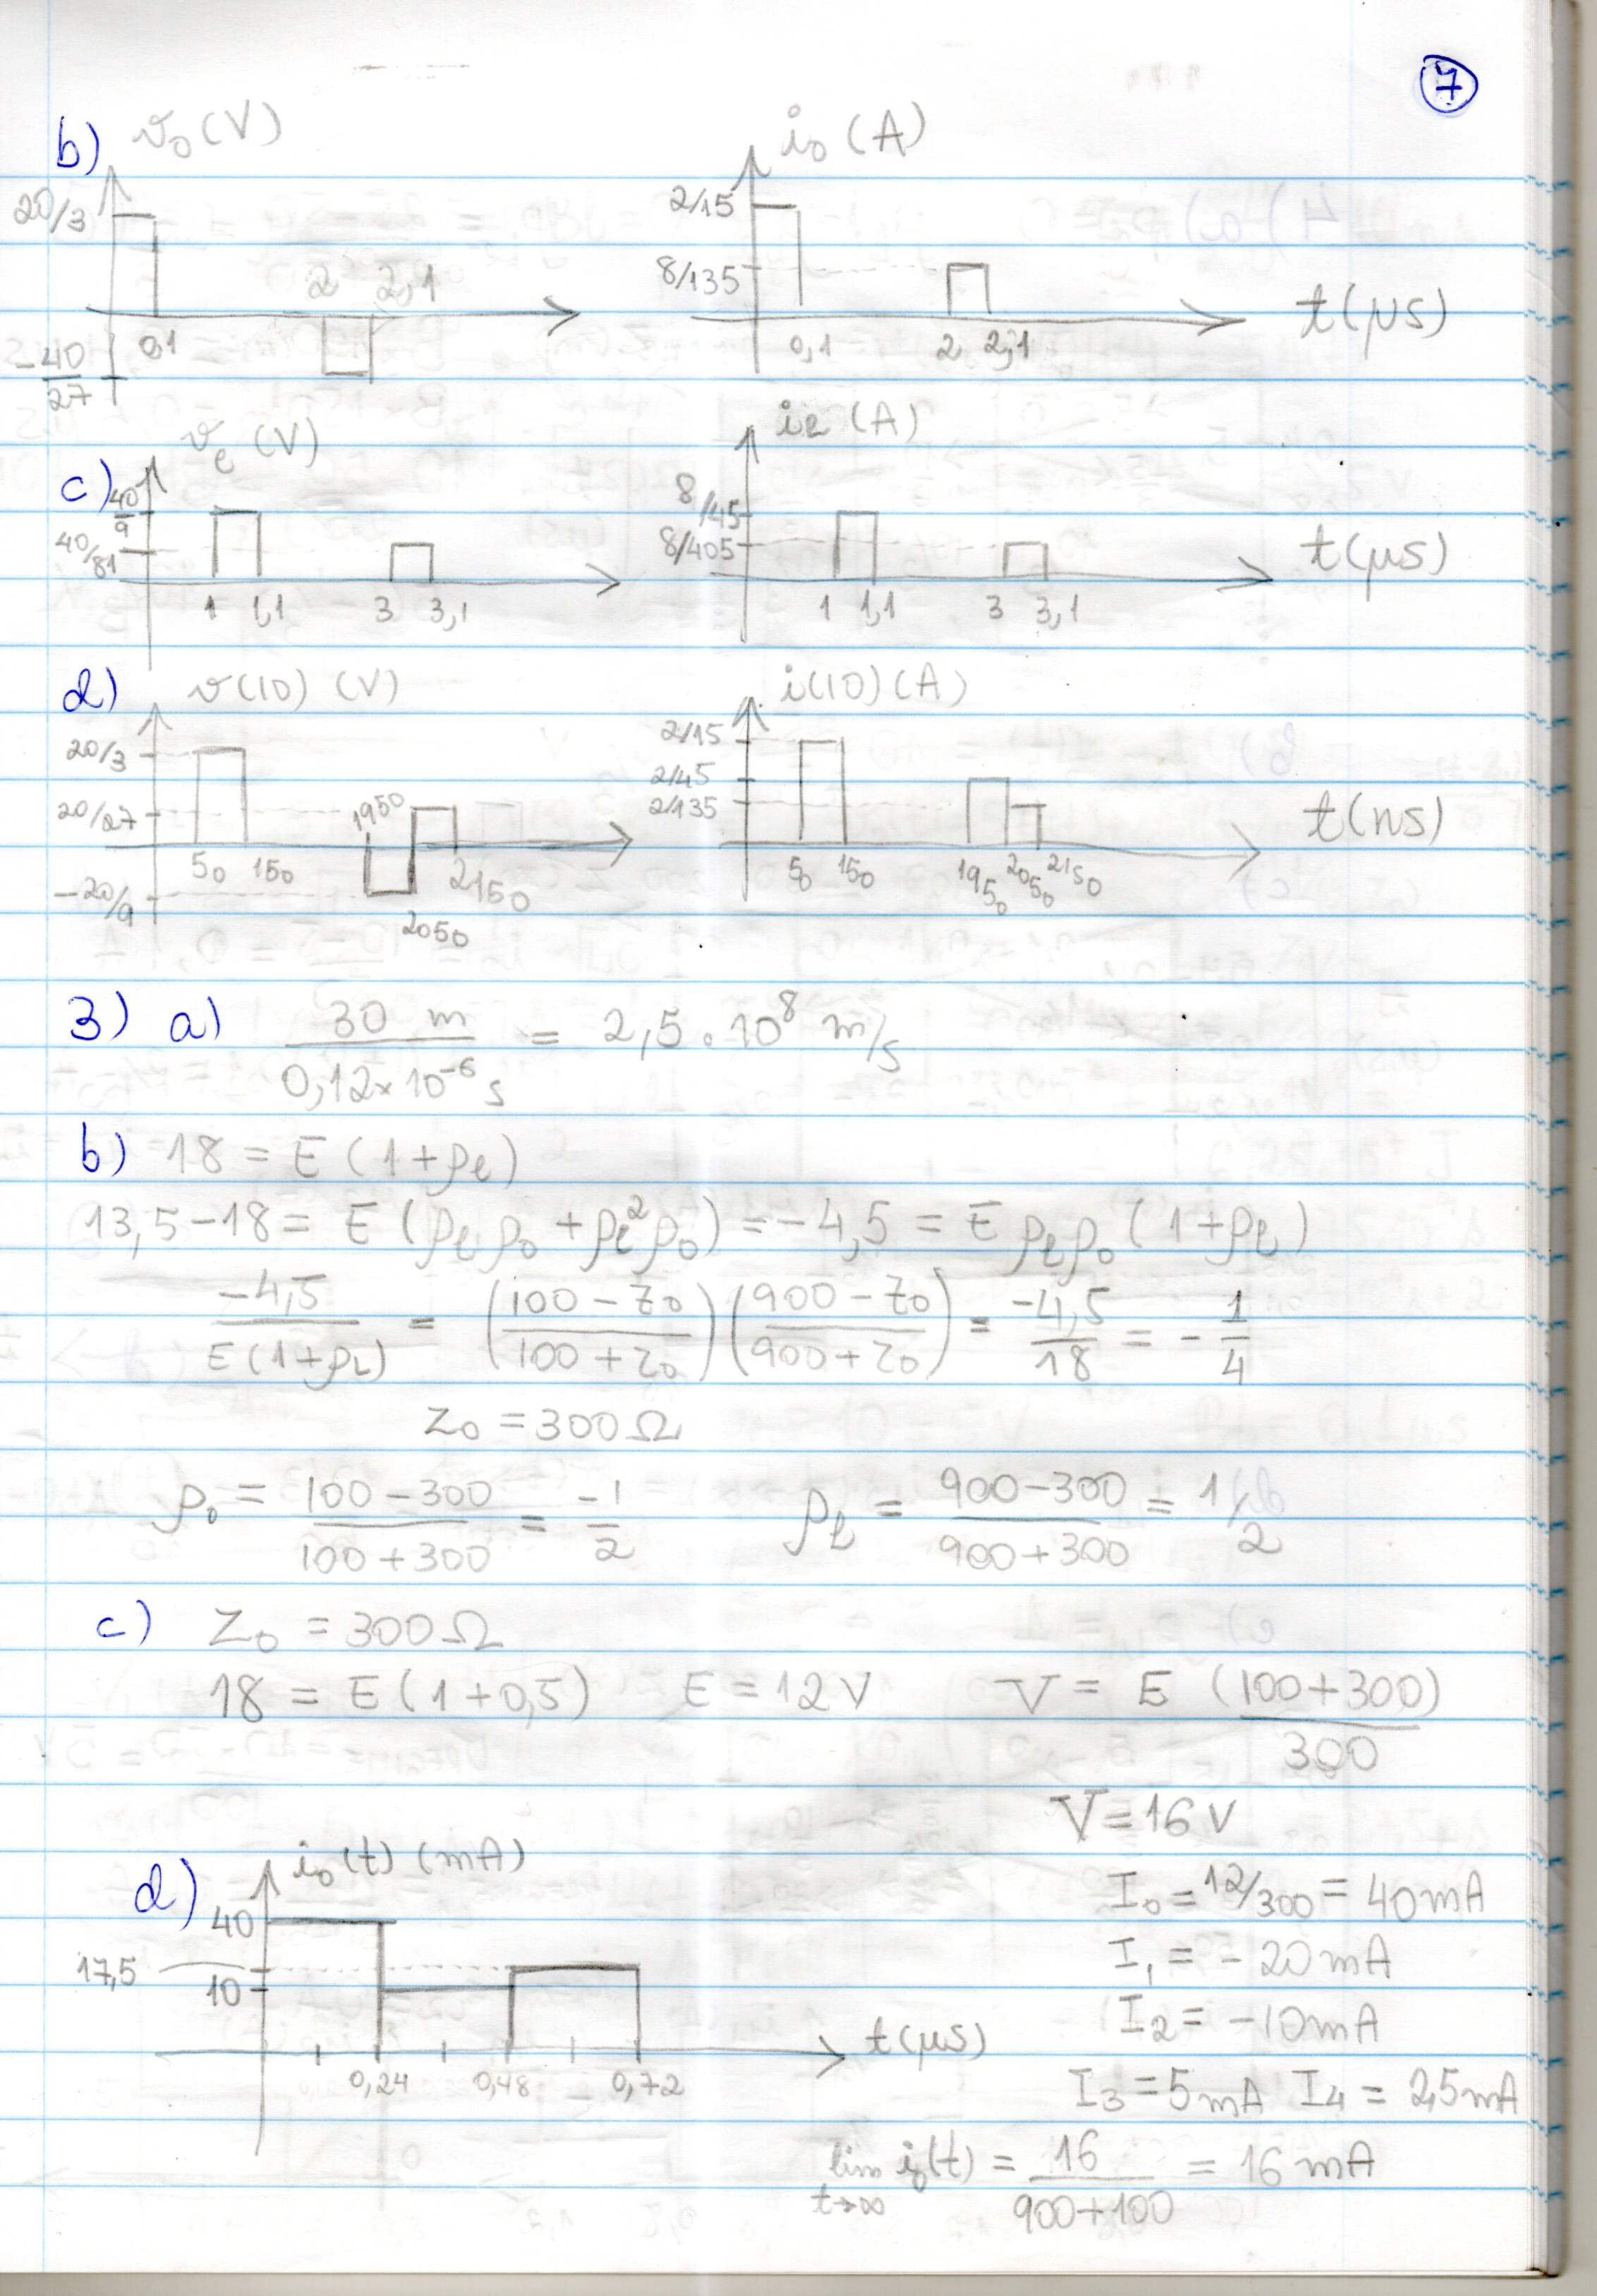 7
b) v₀ (V) i₀ (A)
20/3 2/15
2 2,1 8/135
0,1 0,1 2 2,1 t(μs)
-40/27
c) v_e (V) i_e (A)
40/9 8/45
40/81 8/405
1 1,1 3 3,1 1 1,1 3 3,1 t(μs)
d) v(10) (V) i(10) (A)
20/3 2/15
2/45
20/27 1950 2/135
50 150 2150 50 150 1950 2050 2150 t(ns)
-20/9
2050
3) a) 30 m / 0,12×10⁻⁶ s = 2,5 . 10⁸ m/s
b) 18 = E (1+ρℓ)
13,5-18 = E (ρℓρ₀ + ρℓ²ρ₀) = -4,5 = E ρℓρ₀ (1+ρℓ)
-4,5 / E(1+ρℓ) = (100 - Z₀ / 100 + Z₀) (900 - Z₀ / 900 + Z₀) = -4,5/18 = -1/4
Z₀ = 300Ω
ρ₀ = 100 - 300 / 100 + 300 = -1/2 ρℓ = 900-300 / 900+300 = 1/2
c) Z₀ = 300Ω
18 = E(1+0,5) E = 12V V = E (100+300) / 300
V = 16V
d) i₀(t) (mA)
40
17,5
10
0,24 0,48 0,72 t(μs)
I₀ = 12/300 = 40mA
I₁ = -20mA
I₂ = -10mA
I₃ = 5mA I₄ = 2,5mA
lim t→∞ i₀(t) = 16 / 900+100 = 16 mA